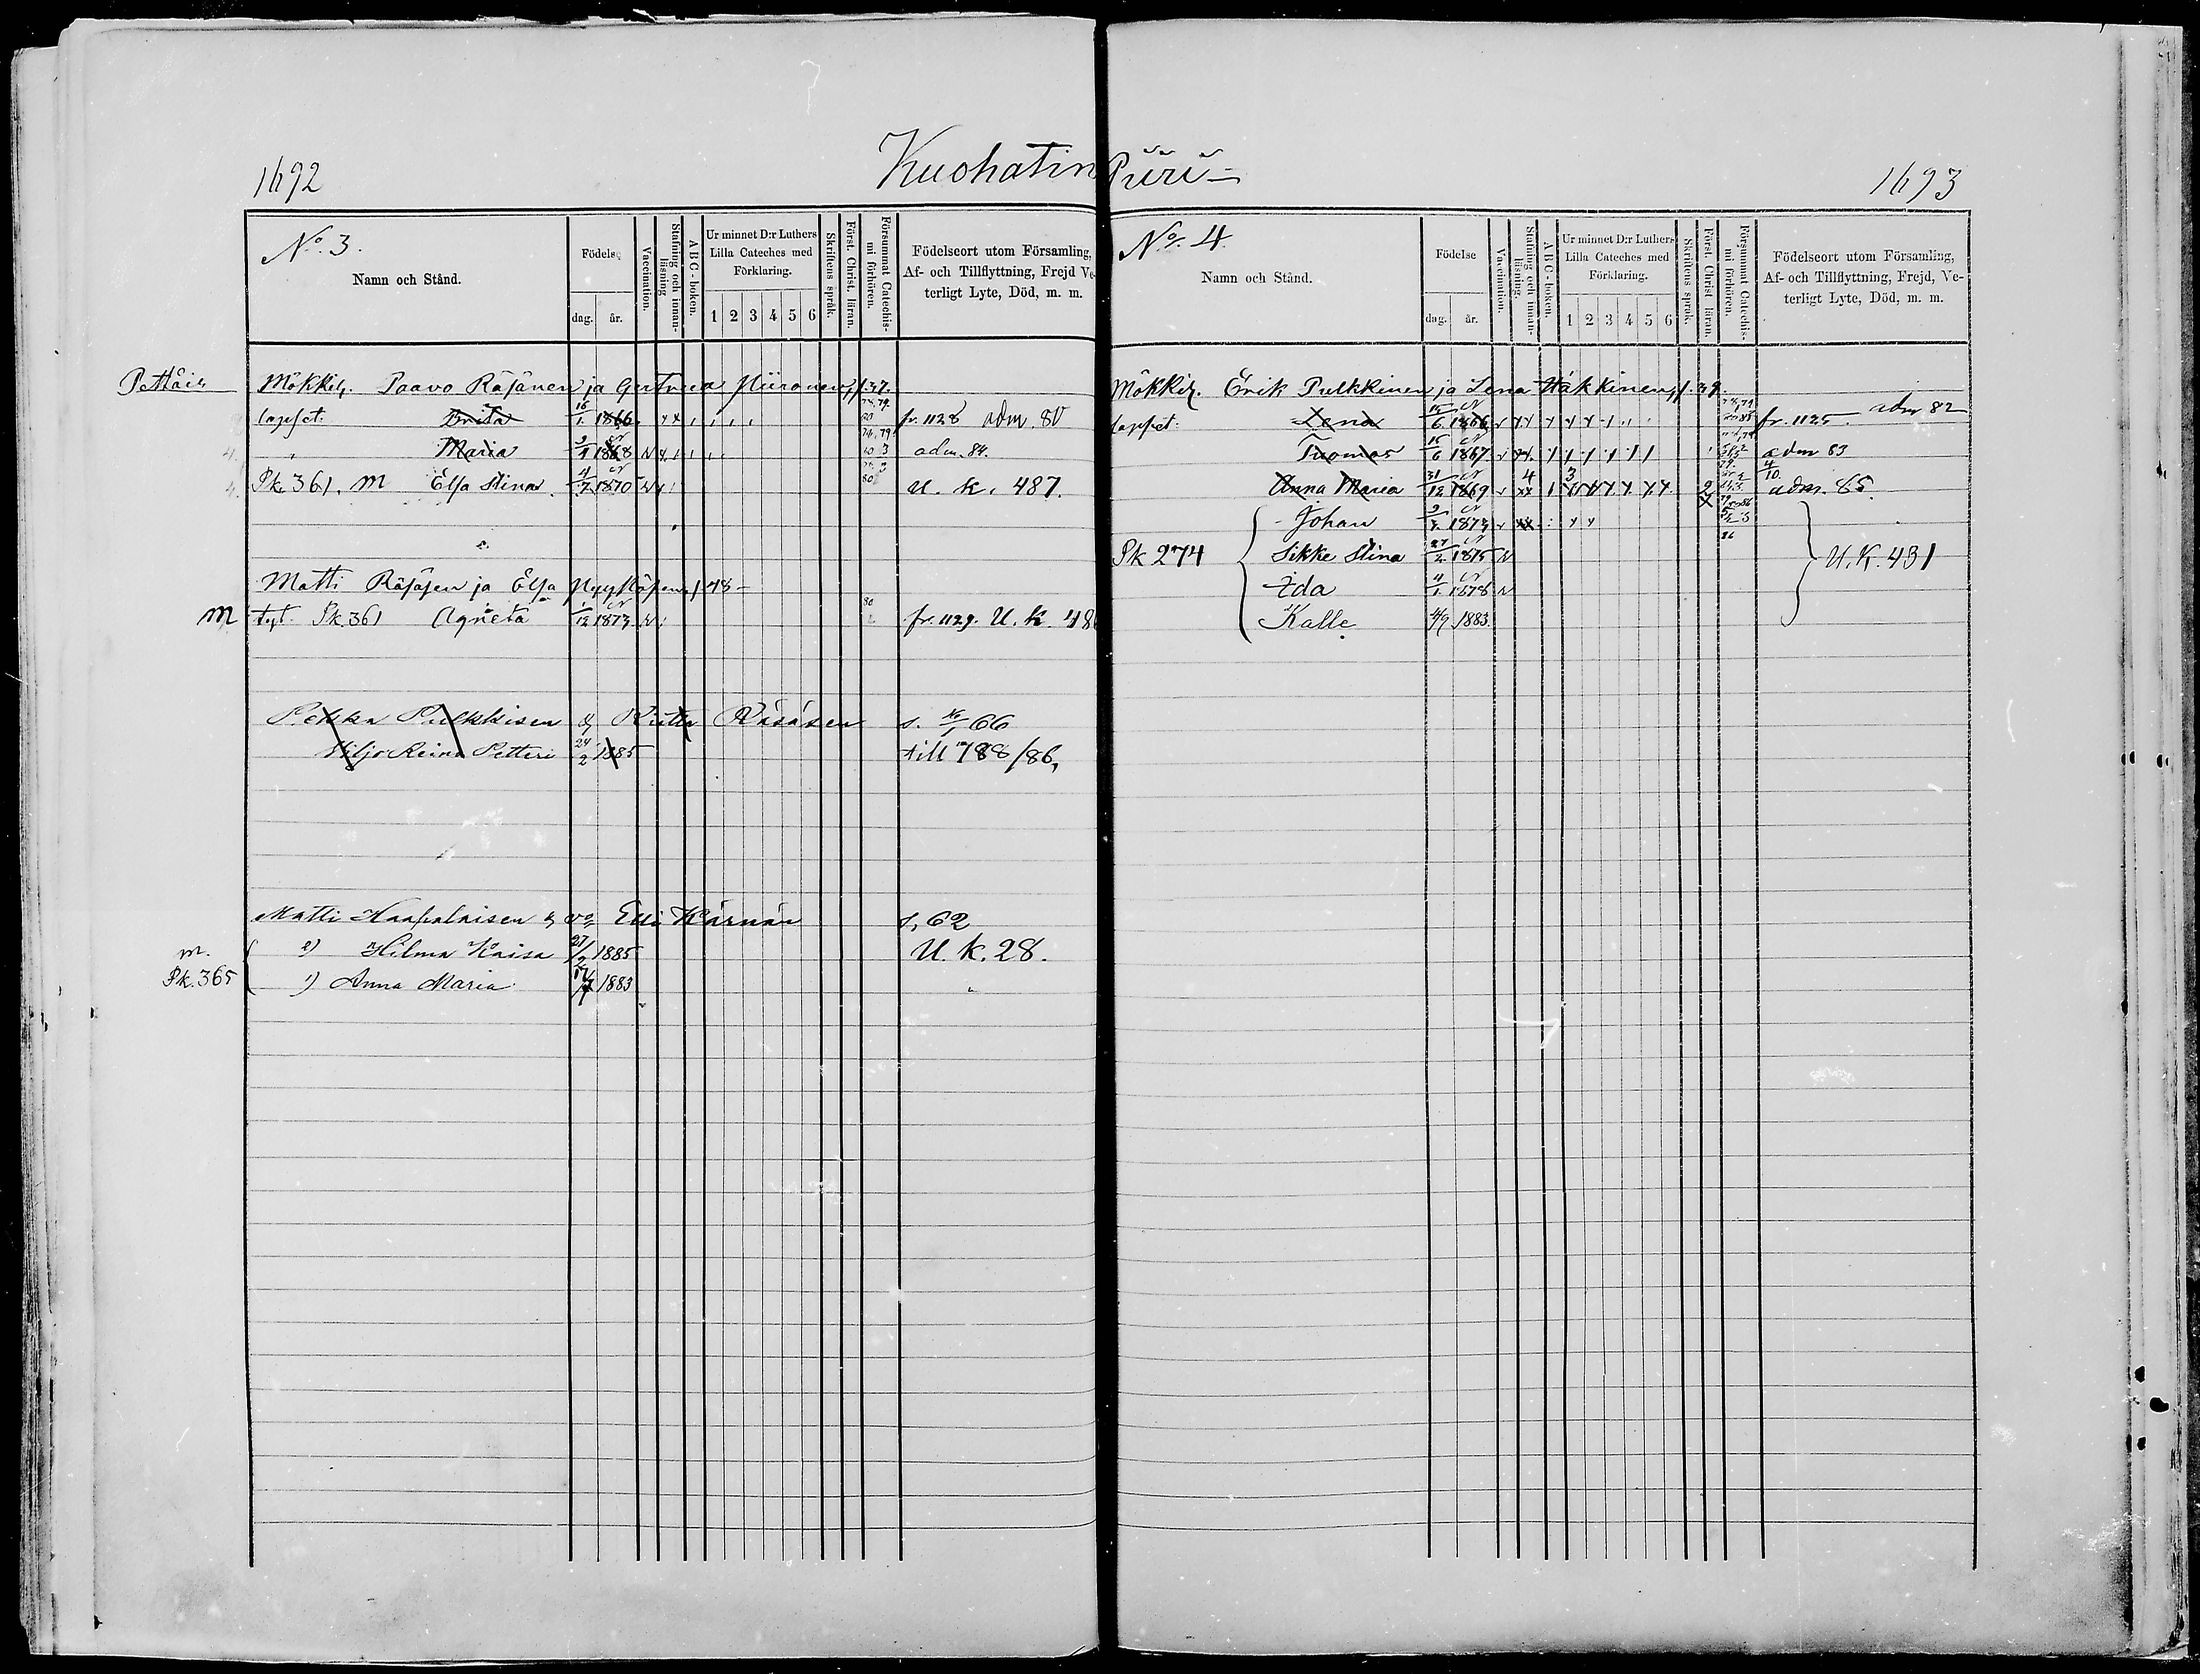 1692
Kuohatin Piiri
1693
No 3.
Namn och Stånd.
Födelse
dag. år.
Vaccination.
Stafning och innanläsning
ABC-boken.
Ur minnet D:r Luthers Lilla Cateches med Förklaring.
1 2 3 4 5 6
Skriftens språk.
Först. Christ. läran.
Försummat Catechismi förhören.
Födelseort utom Församling, Af- och Tillflyttning, Frejd Veterligt Lyte, Död, m. m.
Mökkil. Paavo Räsänen ja Gertrud Piironen, f. 37.
lapset: Brita 16/1 1866 fr. 1128 adm. 80
" Maria 1868 adm. 84.
Pk. 361. m Elsa Stina 4/7 1870 U. K. 487.
Matti Räsäsen ja Elsa f. 48
m tyt. Pk 361 Agneta 1/12 1873 fr. 1129. U. K. 48
Pekka Pulkkisen & Räsäsen s. 66
Viljo Reino Petteri 24/2 1885 till 788/86,
Matti Haapalaisen & vo Elli Kärnän s, 62
m. 2) Hilma Kaisa 27/2 1885 U. K. 28.
Pk. 365 1) Anna Maria 1883 "
No. 4.
Namn och Stånd.
Födelse
dag. år.
Vaccination.
Stafning och innanläsning.
ABC-boken.
Ur minnet D:r Luthers Lilla Cateches med Förklaring.
1 2 3 4 5 6
Skriftens språk.
Först. Christ läran.
Försummat Catechismi förhören.
Födelseort utom Församling, Af- och Tillflyttning, Frejd, Veterligt Lyte, Död, m. m.
Mökkil. Erik Pulkkinen ja Lena Häkkinen, f. 39.
lapset: Lena 15/6 1866 fr. 1125. adm 82
Tuomas 15/6 1867 adm 83
Anna Maria 31/12 1869 adm. 85.
Johan 1873
Pk 274 Sikke Stina 27/2 1875 U. K. 431
Ida 4/1 1878
Kalle 4/9 1883.